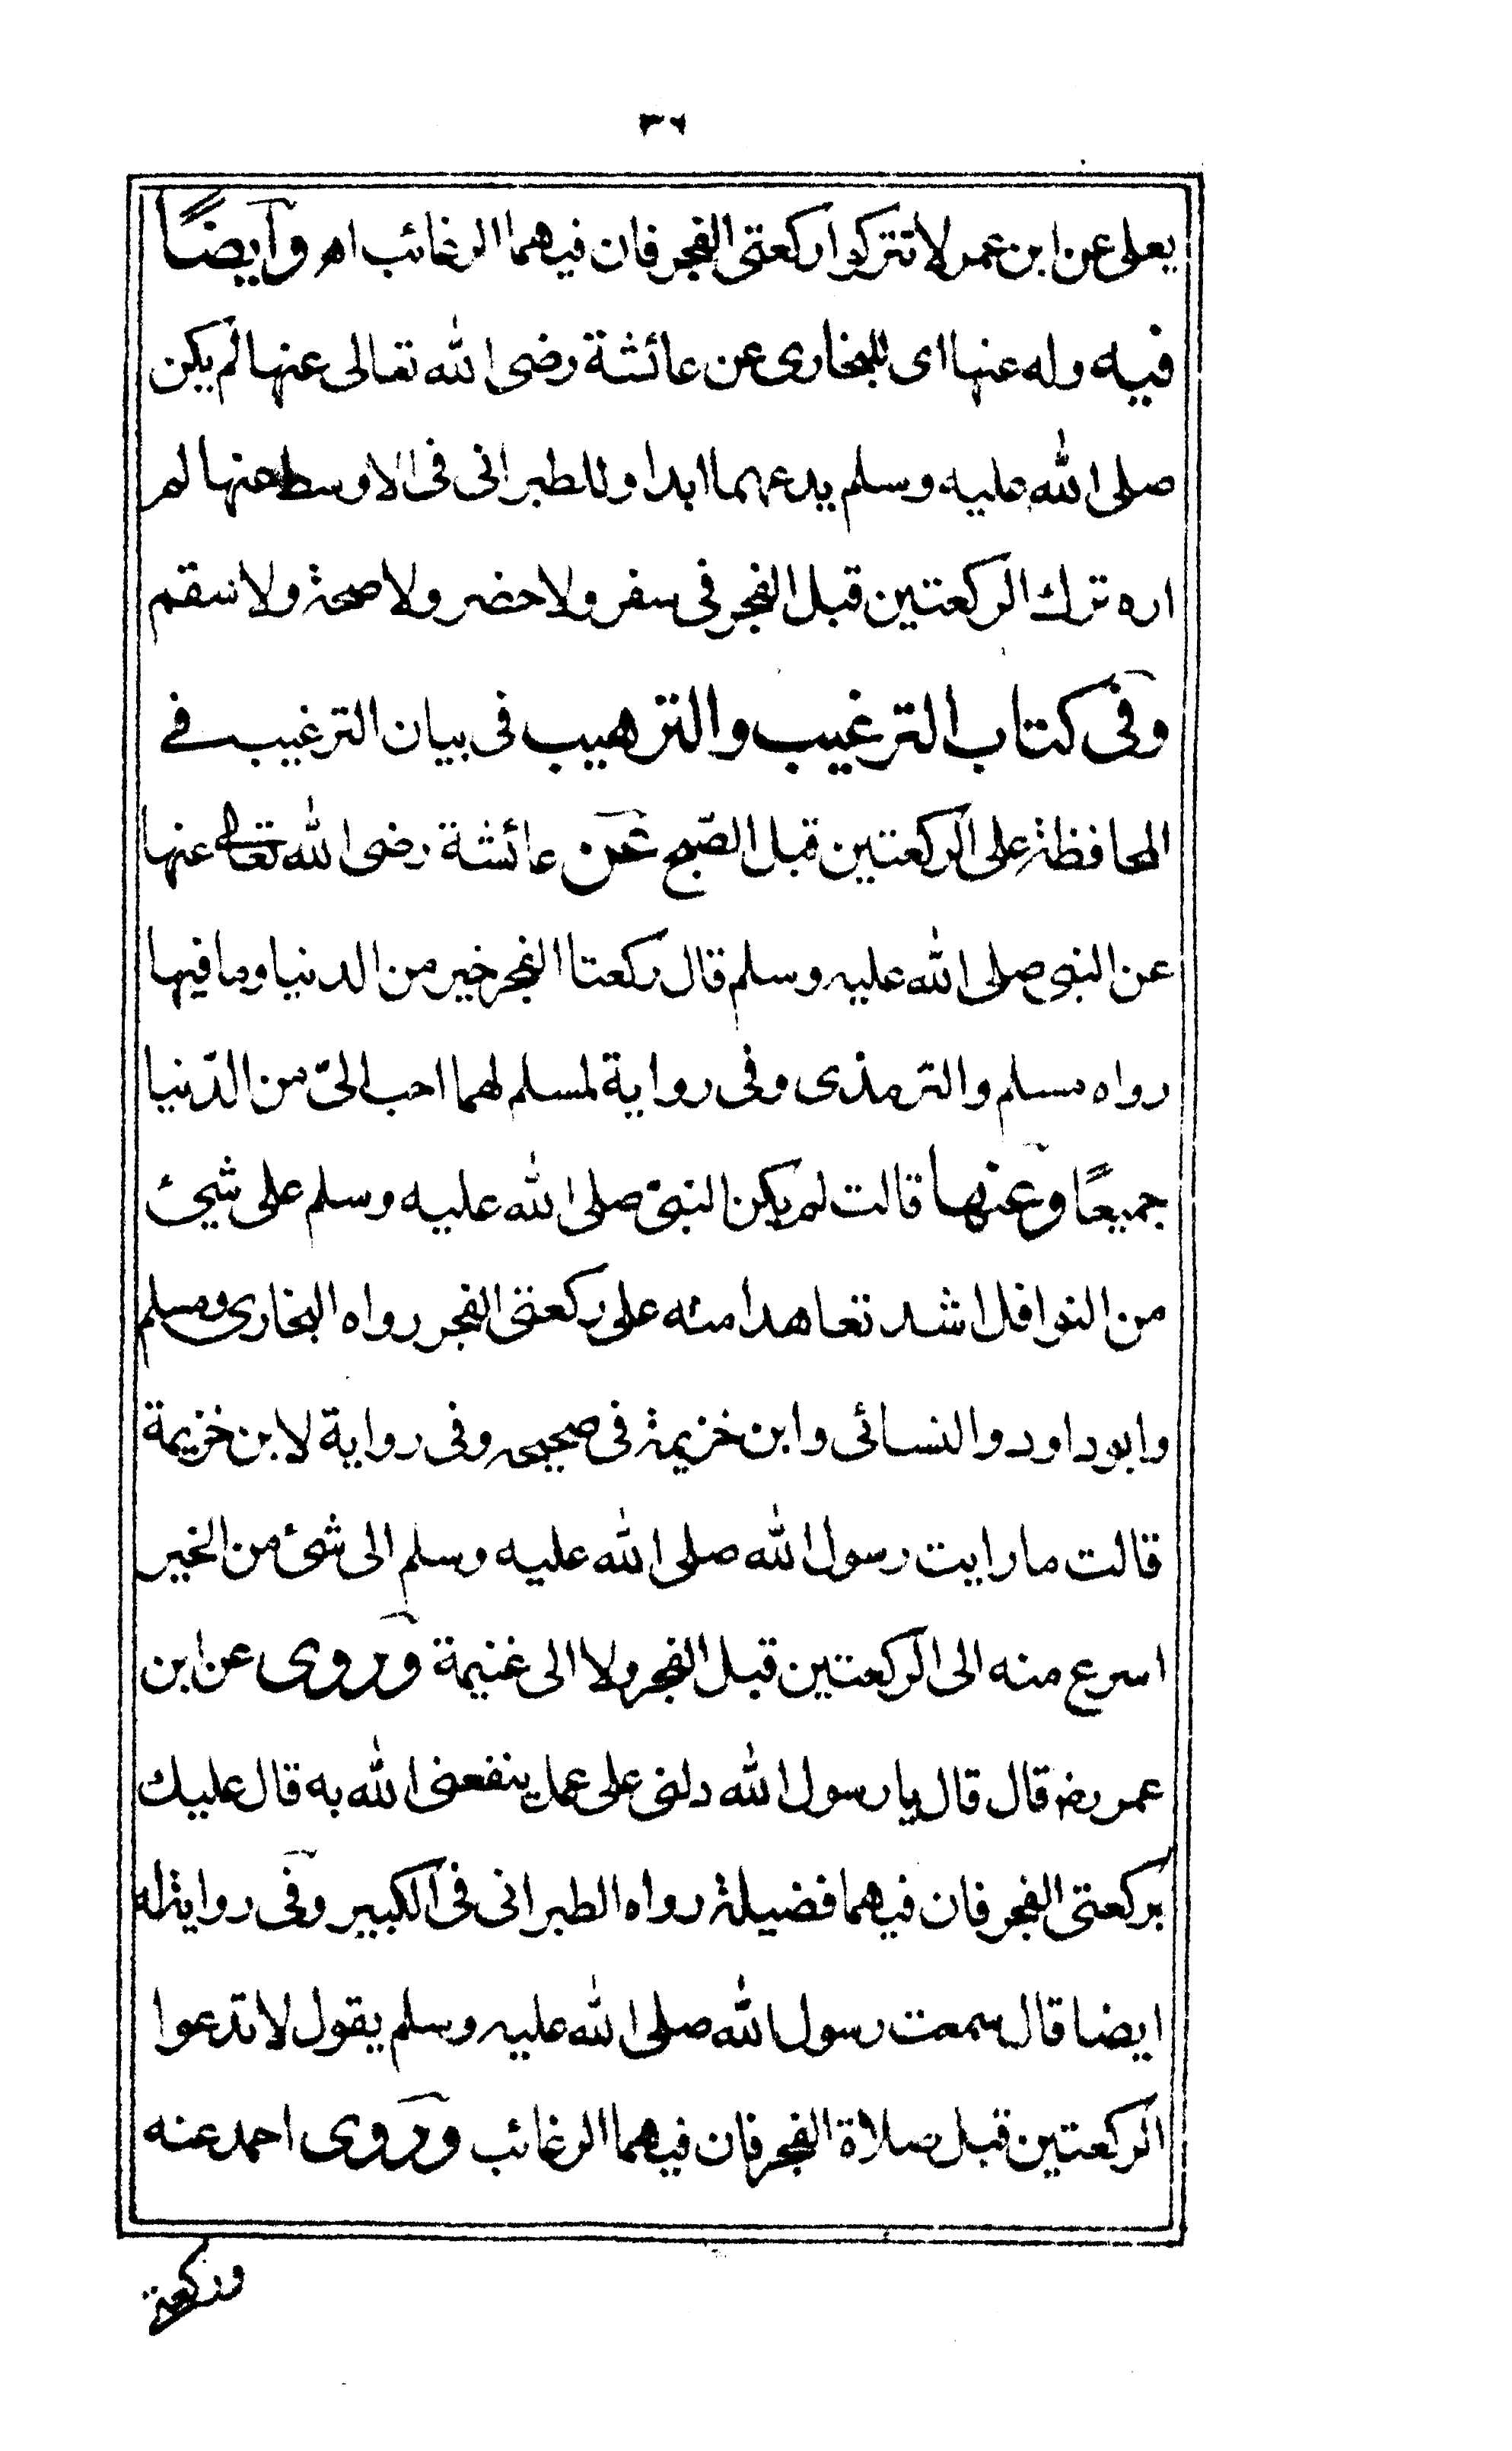 ٣٦
يعلى عن ابن عمر لا تتركوا ركعتى الفجر فان فيهما الرغائب اھ وايضًا
فيه وله عنها اى للبخارى عن عائشة رضى الله تعالى عنها لم يكن
صلى الله عليه وسلم يدعهما ابدا وللطبرانى فى الاوسط عنها لم
اره ترك الركعتين قبل الفجر فى سفر ولا حضر ولا صحة ولا سقم
وفى كتاب الترغيب والترهيب فى بيان الترغيب فے
المحافظة على الركعتين قبل الصّبح عن عائشة رضى الله تعالے عنها
عن النبى صلى الله عليه وسلم قال ركعتا الفجر خير من الدنيا وما فيها
رواه مسلم والترمذى وفى رواية لمسلم لهما احب الىّ من الدّنيا
جميعًا وعنها قالت لم يكن النبىّ صلى الله عليه وسلم على شيئ
من النوافل اشد تعاهدا منه على ركعتى الفجر رواه البخارى ومسلم
وابوداود والنسائى وابن خزيمة فى صحيحه وفى رواية لابن خزيمة
قالت ما رايت رسول الله صلى الله عليه وسلم الى شئ من الخير
اسرع منه الى الركعتين قبل الفجر ولا الى غنيمة وروى عن ابن
عمر رضـ قال قال يا رسول الله دلنى على عمل ينفعنى الله به قال عليك
بركعتى الفجر فان فيهما فضيلة رواه الطبرانى فى الكبير وفى رواية له
ايضا قال سمعت رسول الله صلى الله عليه وسلم يقول لا تدعوا
الركعتين قبل صلاة الفجر فان فيهما الرغائب وروى احمد عنه